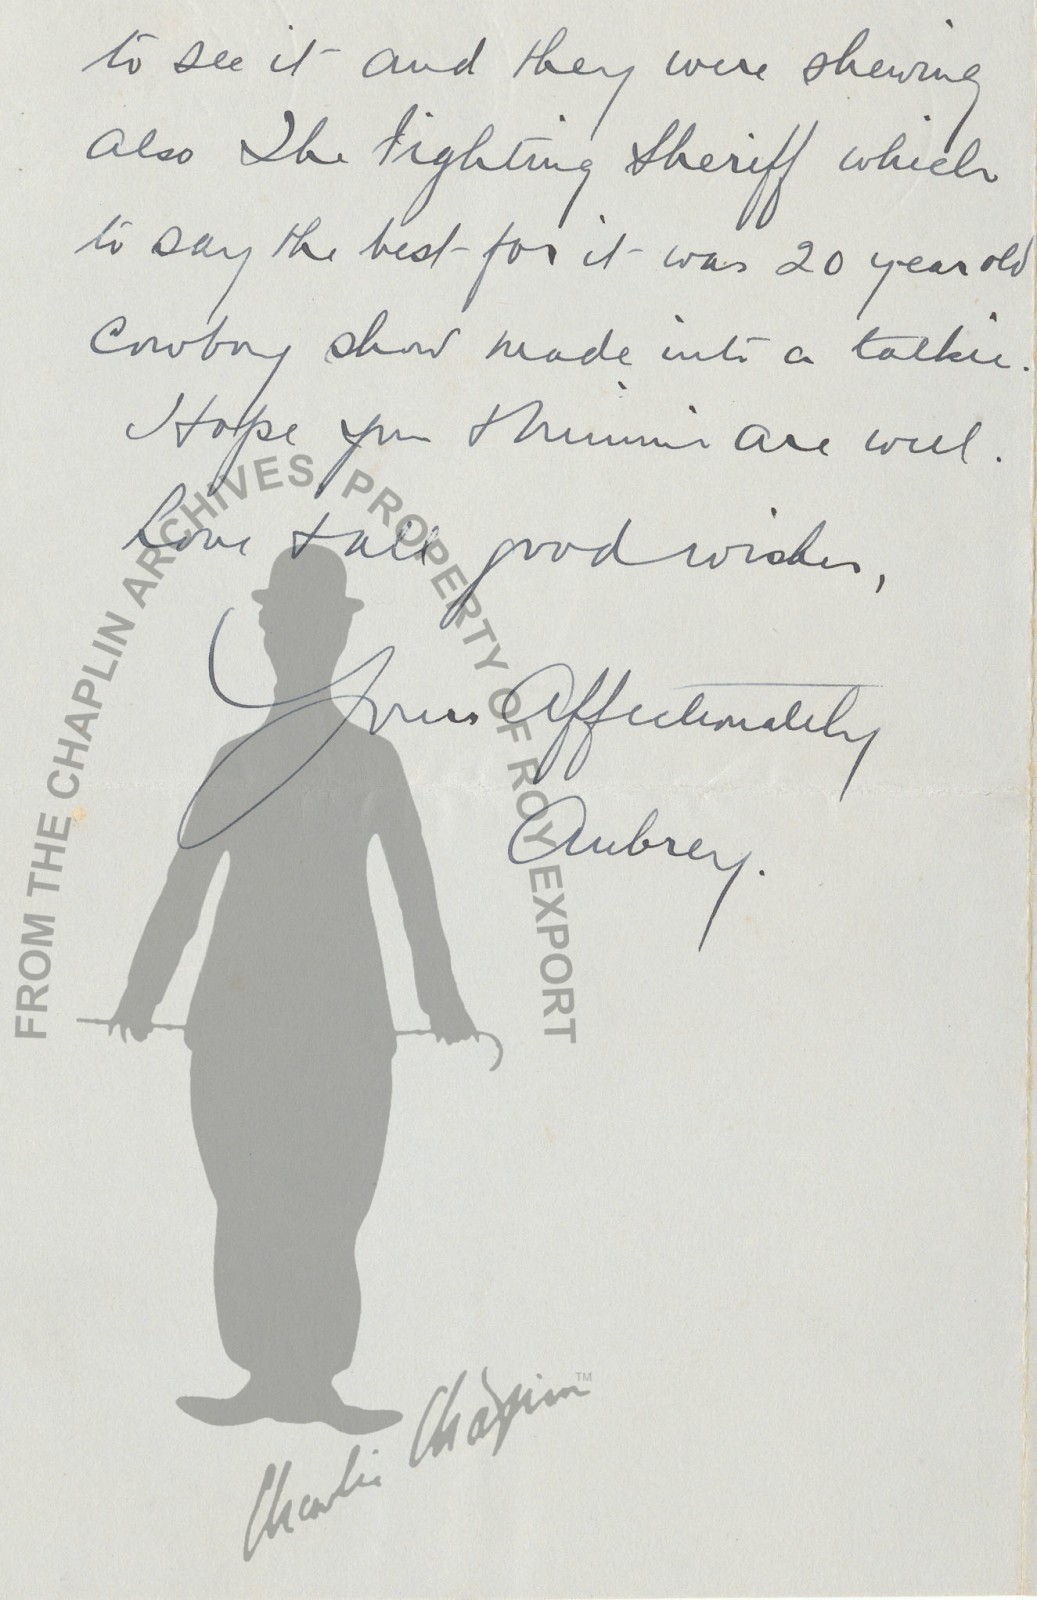 to see it and they were shewing
also The Fighting Sheriff which
to say the best for it was 20 year old
Cowboy show made into a talkie.
Hope you + Minnie are well.
Love + all good wishes,
Yours Affectionately
Aubrey.
FROM THE CHAPLIN ARCHIVES, PROPERTY OF ROY EXPORT
Charlie Chaplin™